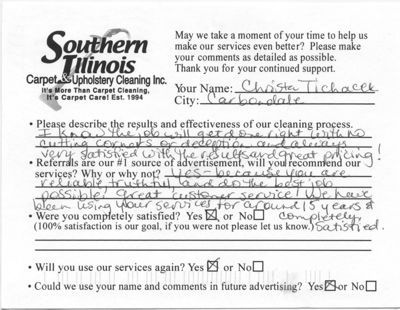 Southern
Illinois
Carpet & Upholstery Cleaning Inc.
It's More Than Carpet Cleaning,
It's Carpet Care! Est. 1994
May we take a moment of your time to help us
make our services even better? Please make
your comments as detailed as possible.
Thank you for your continued support.
Your Name: Christa Tichacek
City: Carbondale
• Please describe the results and effectiveness of our cleaning process.
I know the job will get done right with no
cutting corners or deception and always
very satisfied with the results and great pricing!
• Referrals are our #1 source of advertisement, will you recommend our
services? Why or why not? Yes - because you are
reliable, truthful, and do the best job
possible! Great customer service! We have
been using your services for around 15 years &
completely
satisfied.
• Were you completely satisfied? Yes ☒ or No ☐
(100% satisfaction is our goal, if you were not please let us know.)
• Will you use our services again? Yes ☒ or No ☐
• Could we use your name and comments in future advertising? Yes ☒ or No ☐